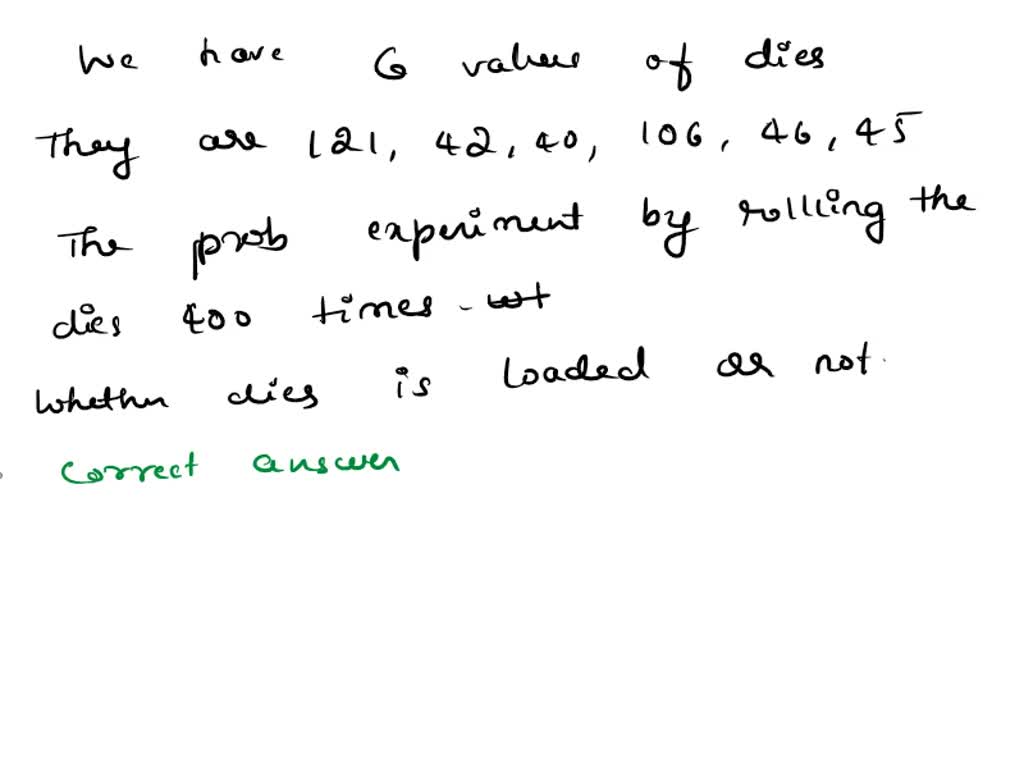 We have 6 values of dies
They are 121, 42, 40, 106, 46, 45
The prob experiment by rolling the
dies 400 times. wt
Whether dies is loaded or not.
Correct answer